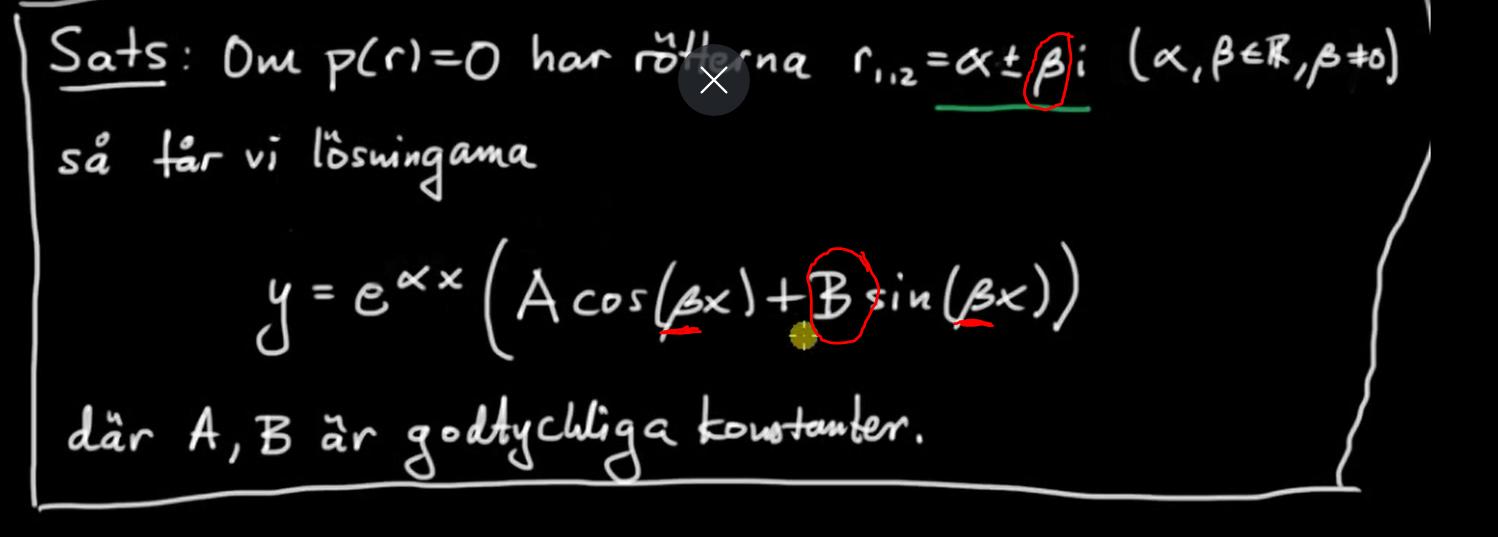 Sats: Om p(r)=0 har rötterna r₁,₂ = α ± βi (α, β ∈ ℝ, β ≠ 0)
så får vi lösningarna
y = e^{αx} (A cos(βx) + B sin(βx))
där A, B är godtyckliga konstanter.